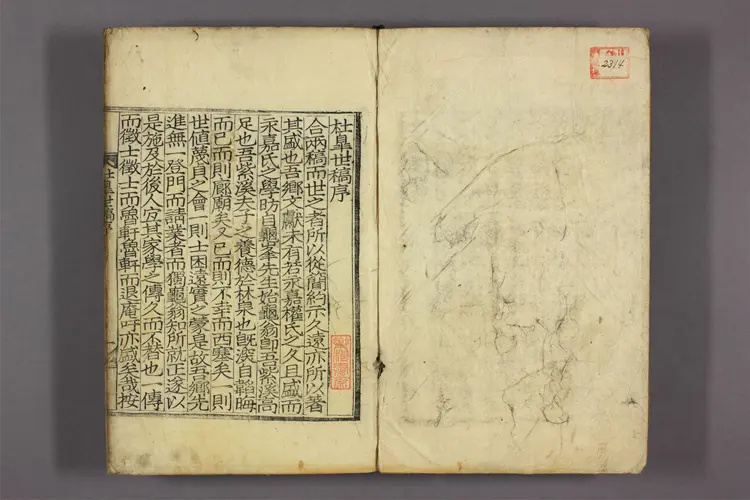 杜臯世稿序
合兩稿而世之者所以從簡約示久遠亦所以著
其盛也吾鄉文獻未有若永嘉權氏之久且盛而
永嘉氏之學昉自龜峯先生始龜翁卽吾
足也吾紫溪夫子之養德於林臯也旣自韜晦
而已而則廊廟矣久已而則不幸而西塞矣一則
世值蔑貞之會一則士困遠實之蒙是故吾鄉先
進無一登門而請業者而獨龜翁知所就正遂以
是施及於後人宜其家學之傳久而不替也一傳
而徵士徵士而魯軒魯軒而退庵吁亦盛矣哉按
杜臯世稿序
2314